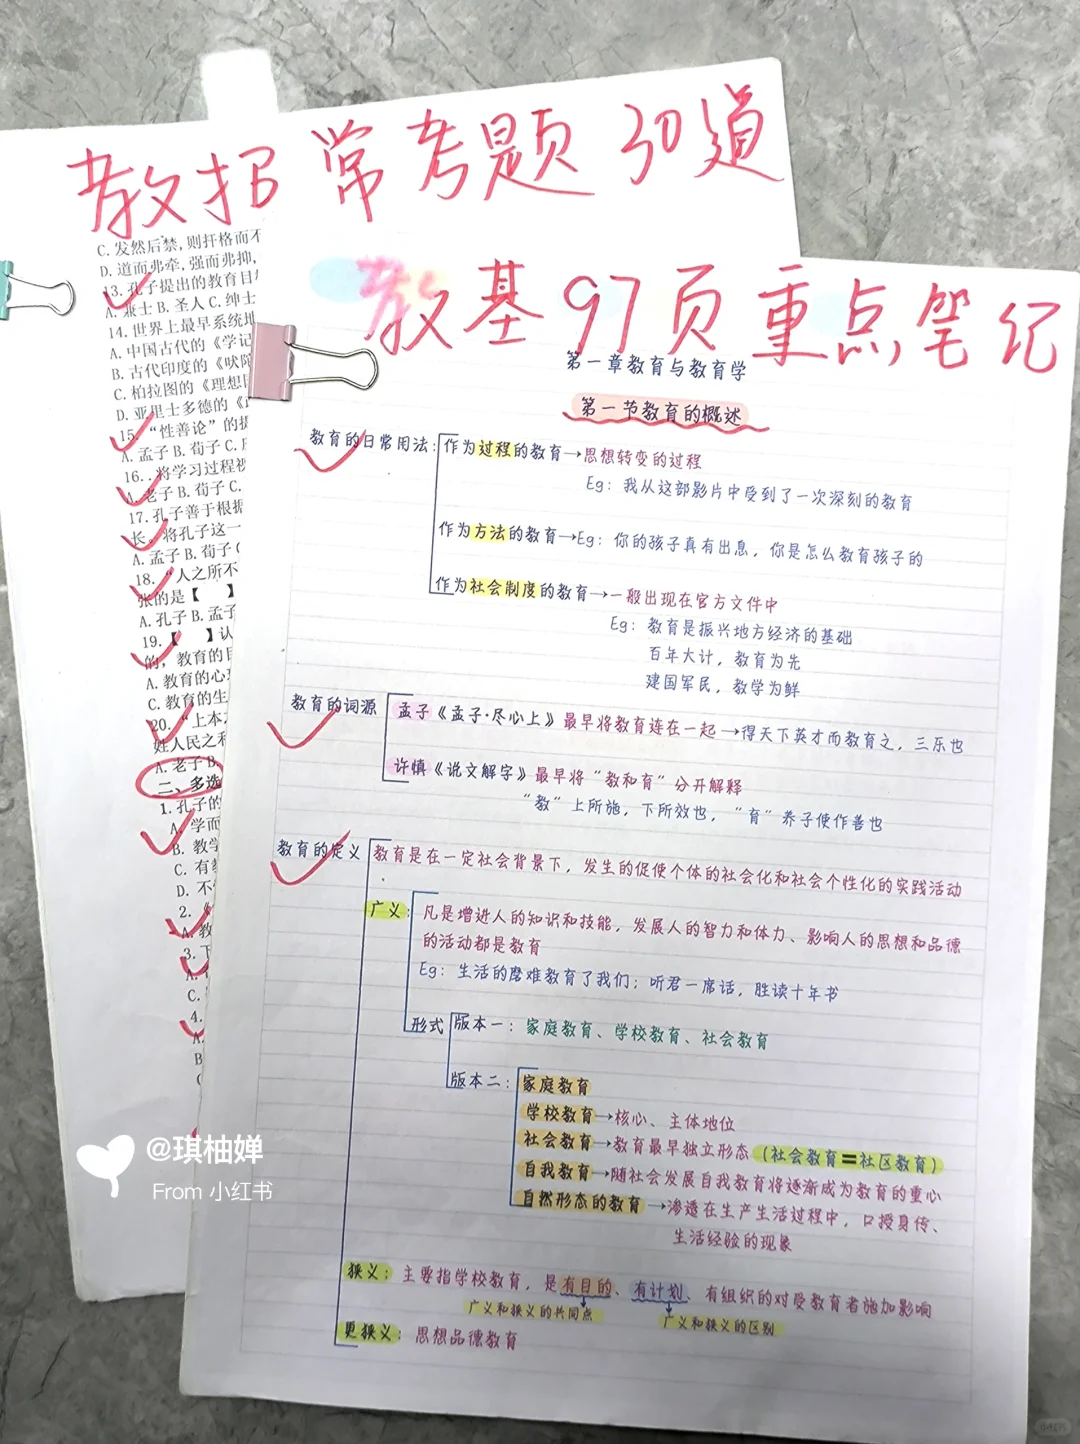 教招常考题30道
C. 发然后禁，则扞格而不
D. 道而弗牵，强而弗抑，
13. 孔子提出的教育目
A. 兼士 B. 圣人 C. 绅士
14. 世界上最早系统地
A. 中国古代的《学记
B. 古代印度的《吠陀
C. 柏拉图的《理想国
D. 亚里士多德的《
15. “性善论”的提
A. 孟子 B. 荀子 C.
16. . 将学习过程视
A. 老子 B. 荀子 C.
17. 孔子善于根据
长，将孔子这一
A. 孟子 B. 荀子
18. “人之所不
张的是【 】
A. 孔子 B. 孟子
19. 【 】认
的，教育的目
A. 教育的心理
C. 教育的生
20. “上本
姓人民之利
A. 老子 B
二、多选
1. 孔子的
A. 学而
B. 教学
C. 有教
D. 不
2. 《
A. 教
3. 下
A.
C.
4.
A.
B
教基97页重点笔记
第一章教育与教育学
第一节教育的概述
教育的日常用法：作为过程的教育→思想转变的过程
Eg：我从这部影片中受到了一次深刻的教育
作为方法的教育→Eg：你的孩子真有出息，你是怎么教育孩子的
作为社会制度的教育→一般出现在官方文件中
Eg：教育是振兴地方经济的基础
百年大计，教育为先
建国军民，教学为鲜
教育的词源 孟子《孟子·尽心上》最早将教育连在一起→得天下英才而教育之，三乐也
许慎《说文解字》最早将“教和育”分开解释
“教”上所施，下所效也，“育”养子使作善也
教育的定义 教育是在一定社会背景下，发生的促使个体的社会化和社会个性化的实践活动
广义：凡是增进人的知识和技能，发展人的智力和体力、影响人的思想和品德
的活动都是教育
Eg：生活的磨难教育了我们；听君一席话，胜读十年书
形式 版本一：家庭教育、学校教育、社会教育
版本二：家庭教育
学校教育→核心、主体地位
社会教育→教育最早独立形态（社会教育=社区教育）
自我教育→随社会发展自我教育将逐渐成为教育的重心
自然形态的教育→渗透在生产生活过程中，口授身传、
生活经验的现象
狭义：主要指学校教育，是有目的、有计划、有组织的对受教育者施加影响
广义和狭义的共同点 广义和狭义的区别
更狭义：思想品德教育
@琪柚婵
From 小红书
小红书